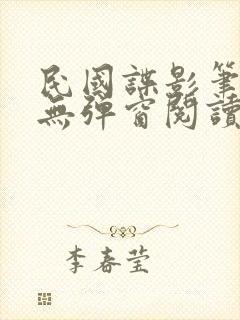 民國諜影筆
無彈窗閱讀
李春莹